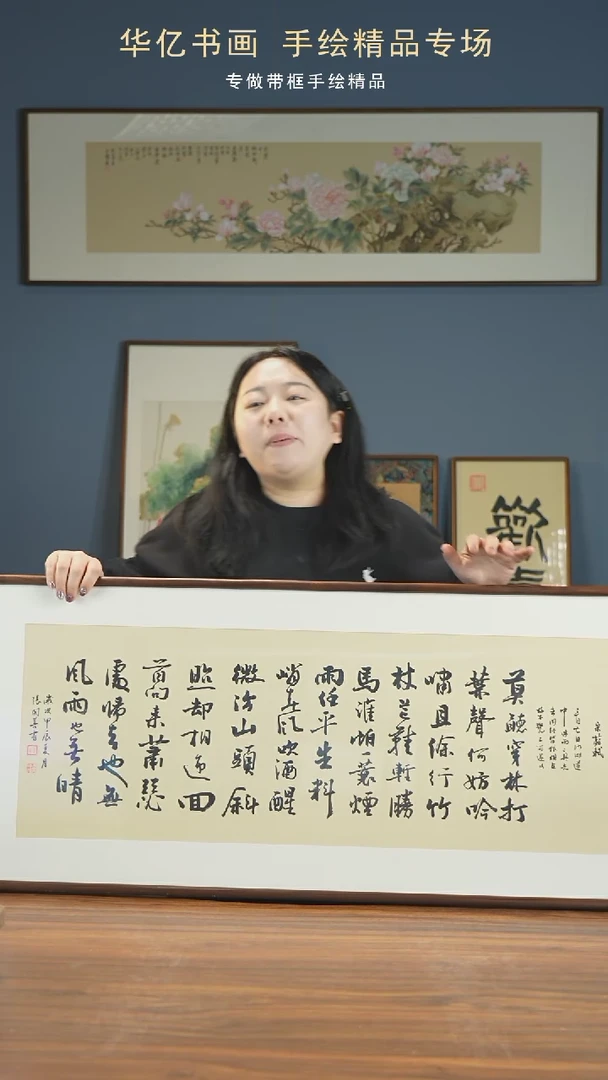 华亿书画 手绘精品专场
专做带框手绘精品
三月七日沙湖道
莫聽穿林打
葉聲何妨吟
嘯且徐行竹
杖芒鞋輕勝
馬誰怕一蓑煙
雨任平生料
峭春風吹酒醒
微冷山頭斜
照却相迎回
首向來蕭瑟
處歸去也無
風雨也無晴
歲次甲辰夏月
歡